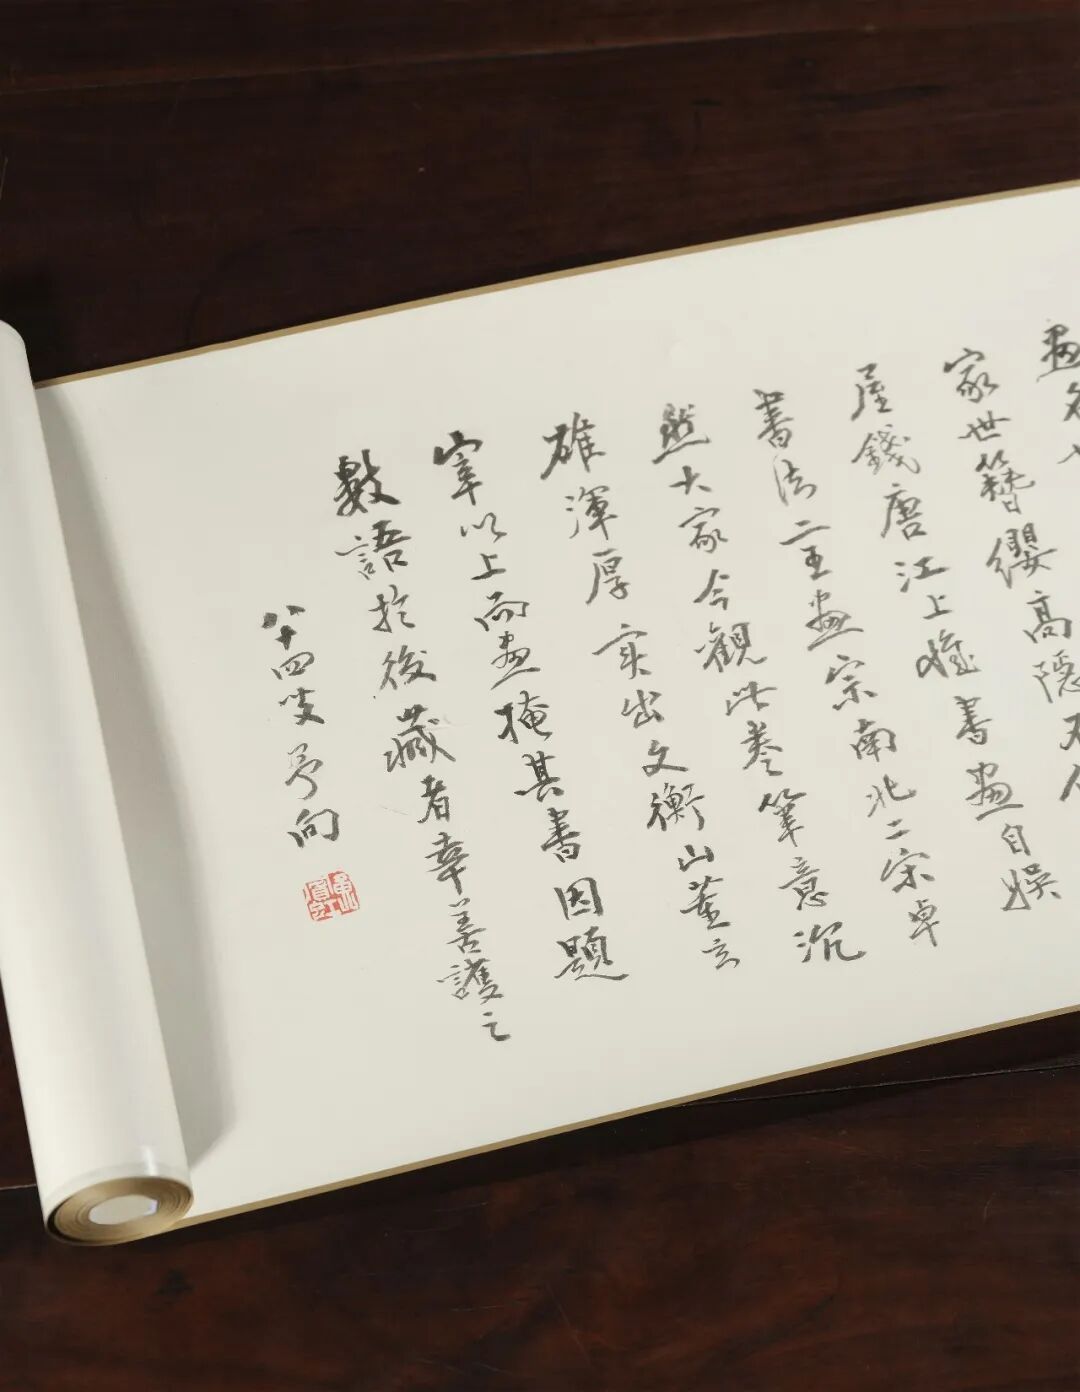 畫名
家世簪纓高隱不
屋錢唐江上惟書畫自娛
書法二王畫宗南北二宋卓
然大家今觀此卷筆意沉
雄渾厚實出文衡山董玄
宰以上而畫掩其書因題
數語於後藏者幸善護之
八十四叟予向
黃賓虹